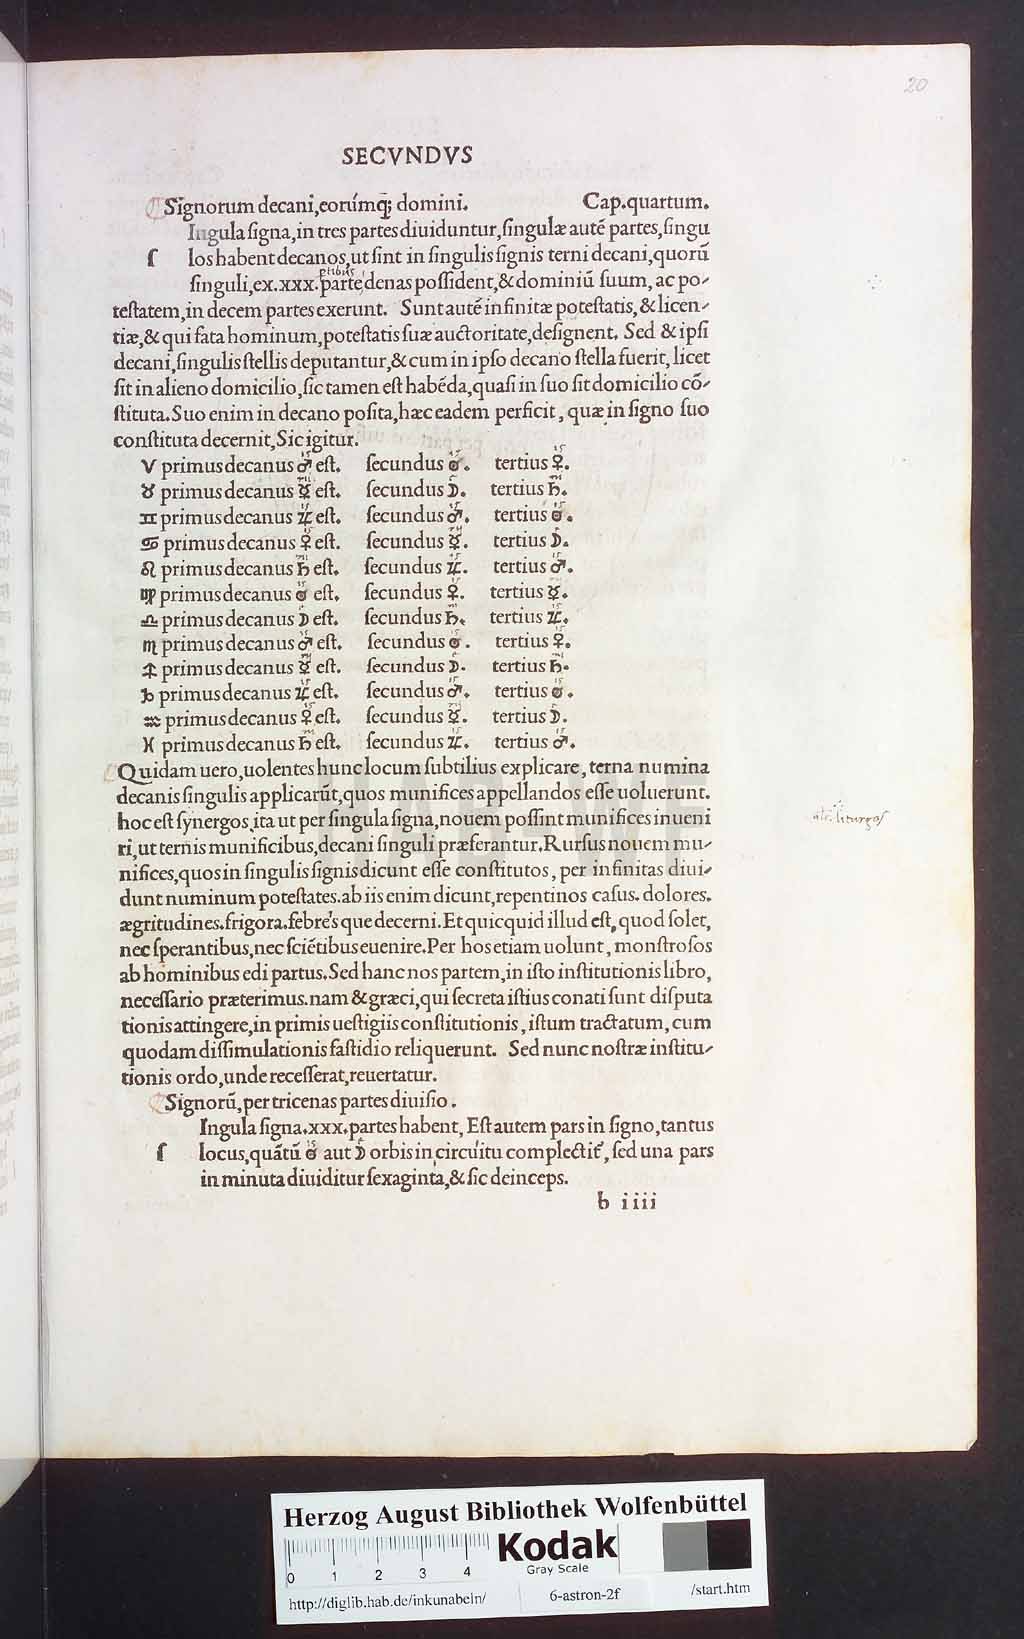 20
SECVNDVS
Signorum decani,eorúmq; domini. Cap.quartum.
Ingula ſigna,in tres partes diuiduntur,ſingulæ auté partes,ſingu
ſ los habent decanos,ut ſint in ſingulis ſignis terni decani,quorū
ſinguli,ex.xxx.parte denas poſſident,& dominiū ſuum, ac po-
teſtatem,in decem partes exerunt. Sunt auté infinitæ poteſtatis,& licen-
tiæ,& qui fata hominum,poteſtatis ſuæ auctoritate,deſignent. Sed & ipſi
decani,ſingulis ſtellis deputantur,& cum in ipſo decano ſtella fuerit, licet
ſit in alieno domicilio,ſic tamen eſt habéda,quaſi in ſuo ſit domicilio cō-
ſtituta.Suo enim in decano poſita,hæc eadem perficit, quæ in ſigno ſuo
conſtituta decernit,Sic igitur.
♈ primus decanus ♂ eſt. ſecundus ☉. tertius ♀.
♉ primus decanus ☿ eſt. ſecundus ☽. tertius ♄.
♊ primus decanus ♃ eſt. ſecundus ♂. tertius ☉.
♋ primus decanus ♀ eſt. ſecundus ☿. tertius ☽.
♌ primus decanus ♄ eſt. ſecundus ♃. tertius ♂.
♍ primus decanus ☉ eſt. ſecundus ♀. tertius ☿.
♎ primus decanus ☽ eſt. ſecundus ♄. tertius ♃.
♏ primus decanus ♂ eſt. ſecundus ☉. tertius ♀.
♐ primus decanus ☿ eſt. ſecundus ☽. tertius ♄.
♑ primus decanus ♃ eſt. ſecundus ♂. tertius ☉.
♒ primus decanus ♀ eſt. ſecundus ☿. tertius ☽.
♓ primus decanus ♄ eſt. ſecundus ♃. tertius ♂.
Quidam uero,uolentes hunc locum ſubtilius explicare, terna numina
decanis ſingulis applicarūt,quos munifices appellandos eſſe uoluerunt.
hoc eſt ſynergos,ita ut per ſingula ſigna,nouem poſſint munifices inueni liturgos
ri,ut ternis munificibus,decani ſinguli præferantur.Rurſus nouem mu-
nifices,quos in ſingulis ſignis dicunt eſſe conſtitutos, per infinitas diui-
dunt numinum poteſtates.ab iis enim dicunt,repentinos caſus. dolores.
ægritudines.frigora.febres que decerni.Et quicquid illud eſt, quod ſolet,
nec ſperantibus,nec ſciétibus euenire.Per hos etiam uolunt, monſtroſos
ab hominibus edi partus.Sed hanc nos partem,in iſto inſtitutionis libro,
neceſſario præterimus.nam & græci,qui ſecreta iſtius conati ſunt diſputa
tionis attingere,in primis ueſtigiis conſtitutionis, iſtum tractatum, cum
quodam diſſimulationis faſtidio reliquerunt. Sed nunc noſtræ inſtitu-
tionis ordo,unde receſſerat,reuertatur.
Signorū,per tricenas partes diuiſio.
Ingula ſigna.xxx.partes habent, Eſt autem pars in ſigno,tantus
ſ locus,quātū ☉ aut ☽ orbis in circuitu complectit̃, ſed una pars
in minuta diuiditur ſexaginta,& ſic deinceps.
b iiii
HAB-WF
Herzog August Bibliothek Wolfenbüttel
0 1 2 3 4
Kodak
Gray Scale
http://diglib.hab.de/inkunabeln/ 6-astron-2f /start.htm